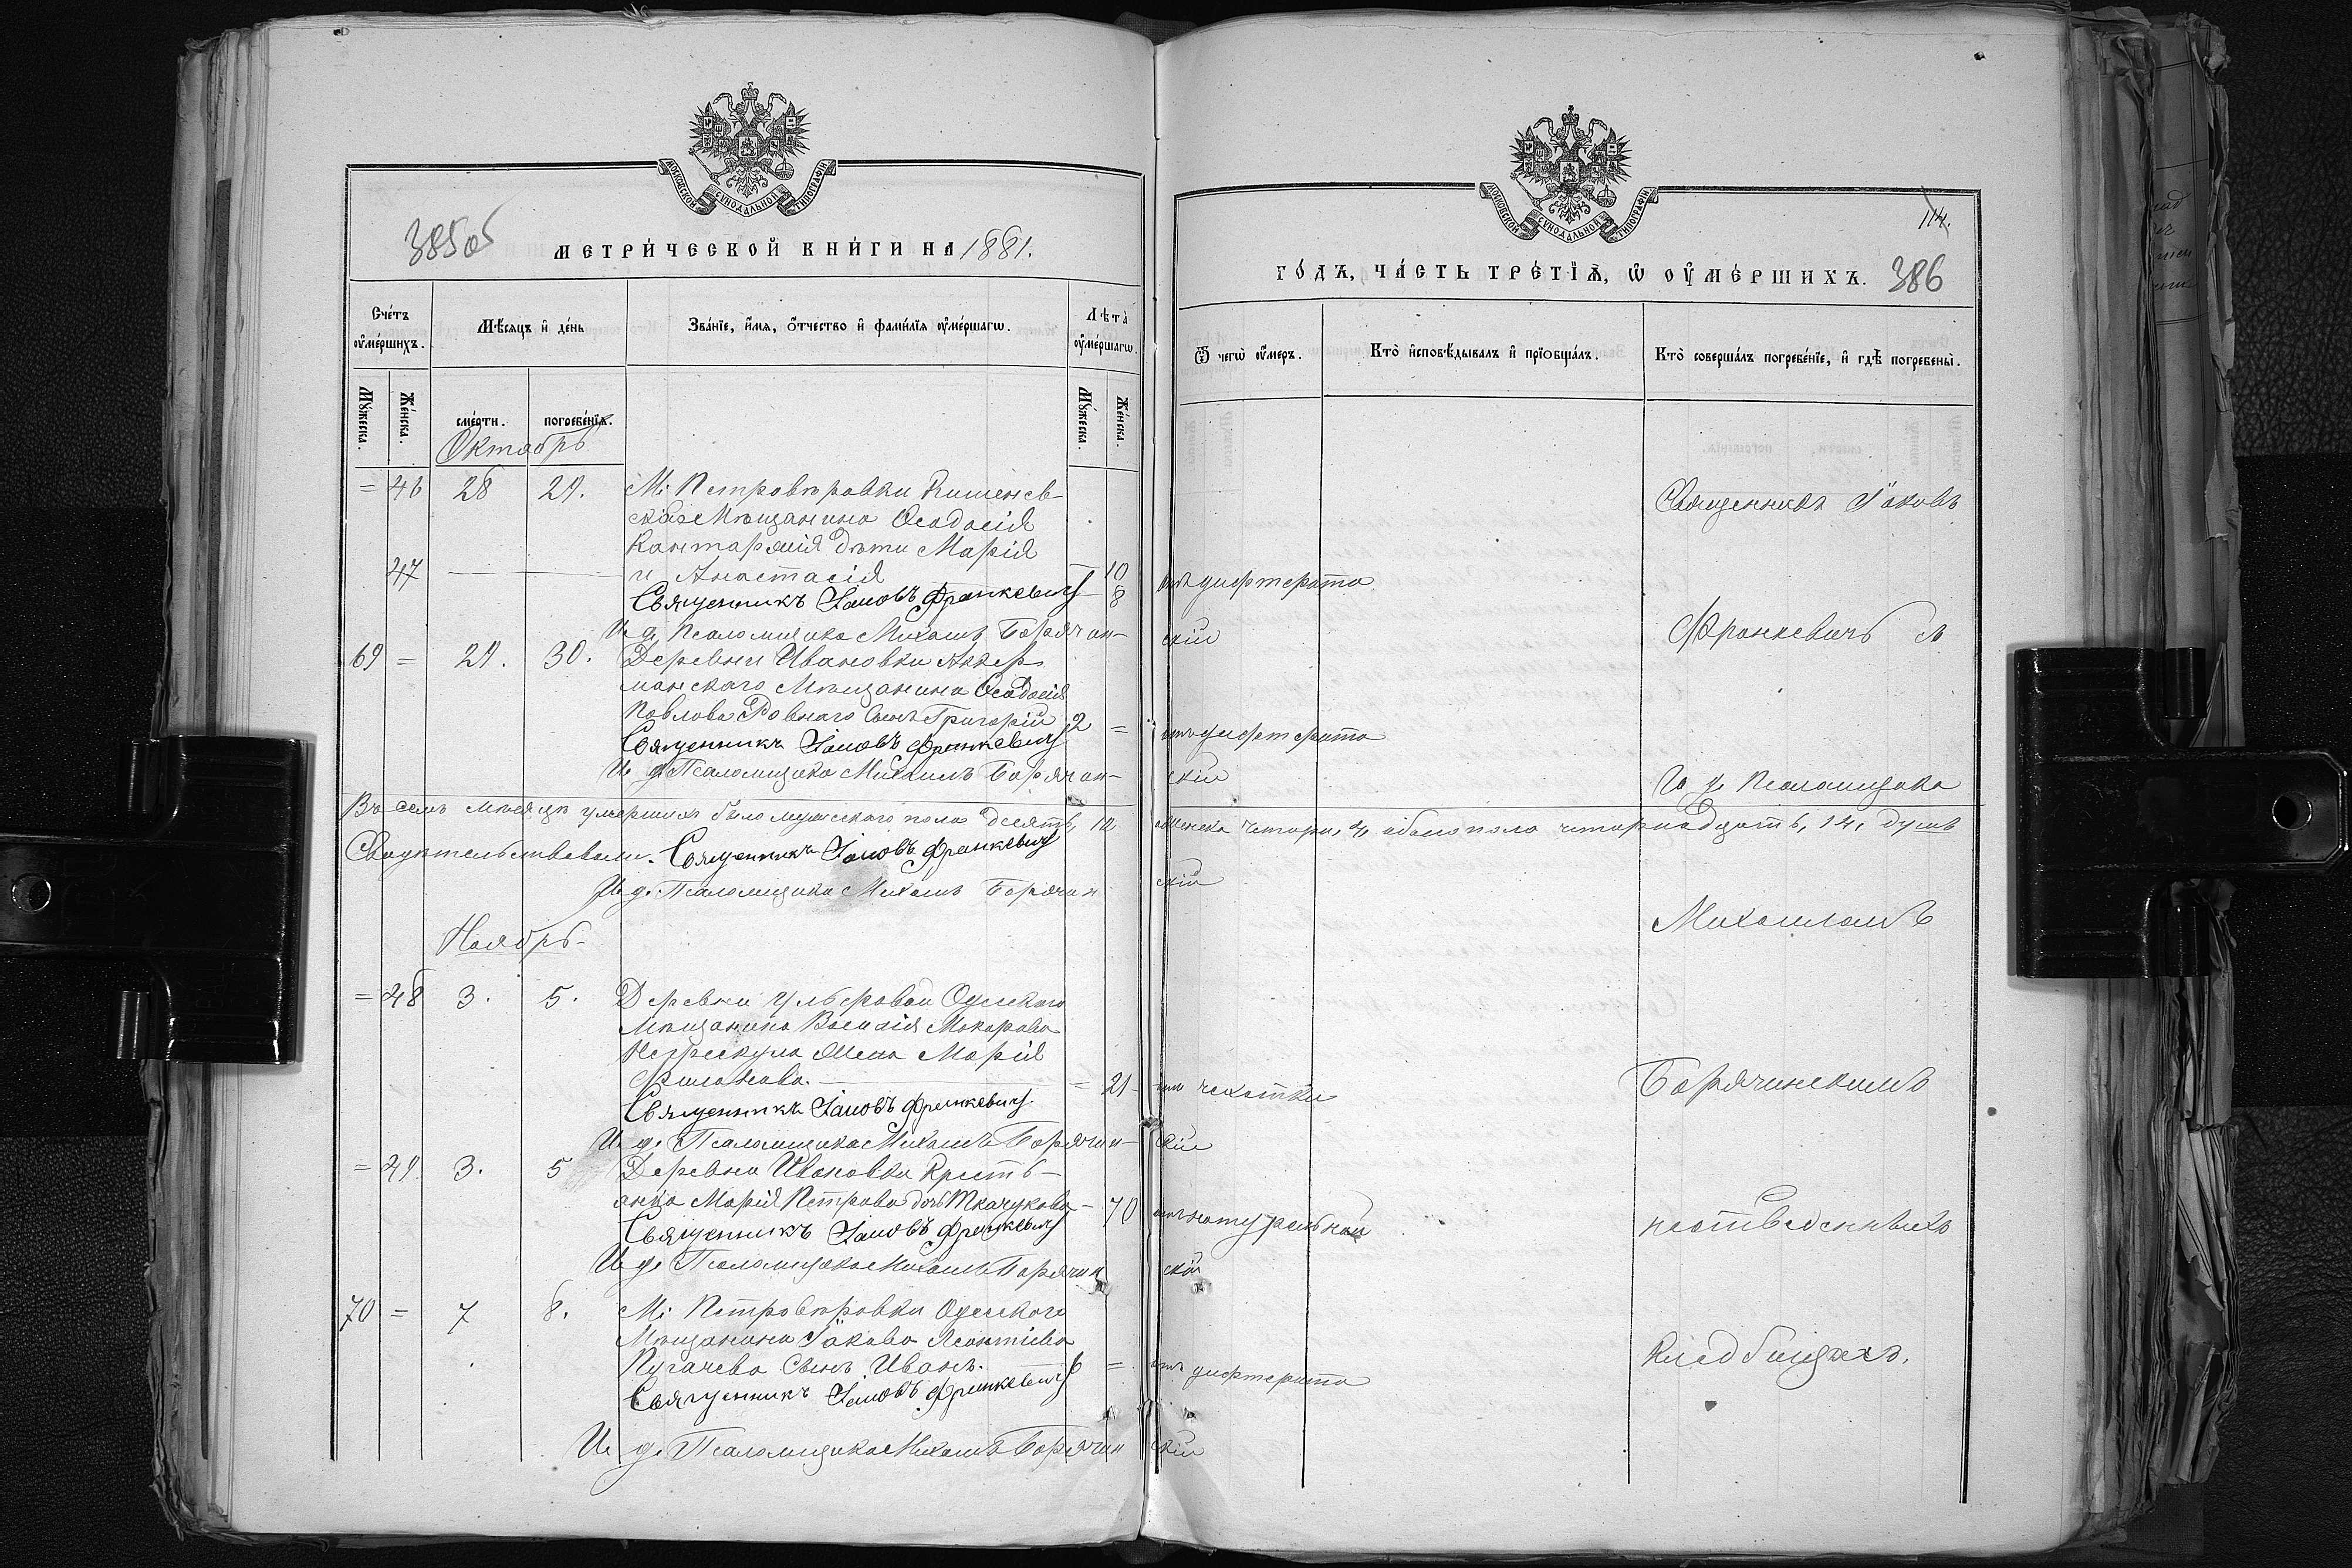 МОСКОВСКОЙ СѴНОДАЛЬНОЙ ТИПОГРАФІИ
385об
МЕТРИЧЕСКОЙ КНИГИ НА 1881.
Счетъ оумершихъ.
Мѣсяцъ и день
Званіе, имя, отчество и фамилія оумершагѡ.
Лѣта оумершагѡ.
Мужеска.
Женска.
смерти.
погребенія.
Мужеска.
Женска.
Октябрь
= 46 28 29. М. Петровѣровки Кишенев-
скаго Мѣщанина Ѳеодосія
Кантаржія дѣти Марія
47 — и Анастасія — 10
8
Священникъ Іаковъ Франкевичъ
И. д. Псаломщика Михаилъ Борячин-
69 = 29. 30. Деревни Ивановки Аккер
манскаго Мѣщанина Ѳеодосія
Павлова Ровнаго сынъ Григорій 2 =
Священникъ Іаковъ Франкевичъ
И. д. Псаломщика Михаилъ Борячин-
Въ семъ мѣсяцѣ умершихъ было мужескаго пола десять, 10
Свидѣтельствовали. Священникъ Іаковъ Франкевичъ
И. д. Псаломщика Михаилъ Борячин
Ноябрь
= 48 3. 5. Деревни Одесскаго
Мѣщанина Василія Макарова
жена Марія
= 21
Священникъ Іаковъ Франкевичъ
И. д. Псаломщика Михаилъ Борячин-
= 49. 3. 5 Деревни Ивановки Кресть-
анка Марія Петрова дочь Ткачукова — 70
Священникъ Іаковъ Франкевичъ
И. д. Псаломщика Михаилъ Борячин
70 = 7 8. М. Петровѣровки Одесскаго
Мѣщанина Іакова Леонтіева
Пугачева сынъ Иванъ. 6 =
Священникъ Іаковъ Франкевичъ
И. д. Псаломщика Михаилъ Борячин
МОСКОВСКОЙ СѴНОДАЛЬНОЙ ТИПОГРАФІИ
114.
ГОДЪ, ЧАСТЬ ТРЕТІЯ, Ѡ ОУМЕРШИХЪ. 386
Ѿ чегѡ оумеръ.
Кто исповѣдывалъ и пріобщалъ.
Кто совершалъ погребеніе, и гдѣ погребены.
Священникъ Іаковъ
отъ дифтерита
скій
Франкевичъ съ
отъ дифтерита
скій
И. д. Псаломщика
женска четыри, 4, обоего пола четырнадцать, 14, душъ
скій
Михаиломъ
отъ чахотки
Борячинскимъ
скій
отъ натуральной
на отведенныхъ
скій
кладбищахъ.
отъ дифтерита
скій